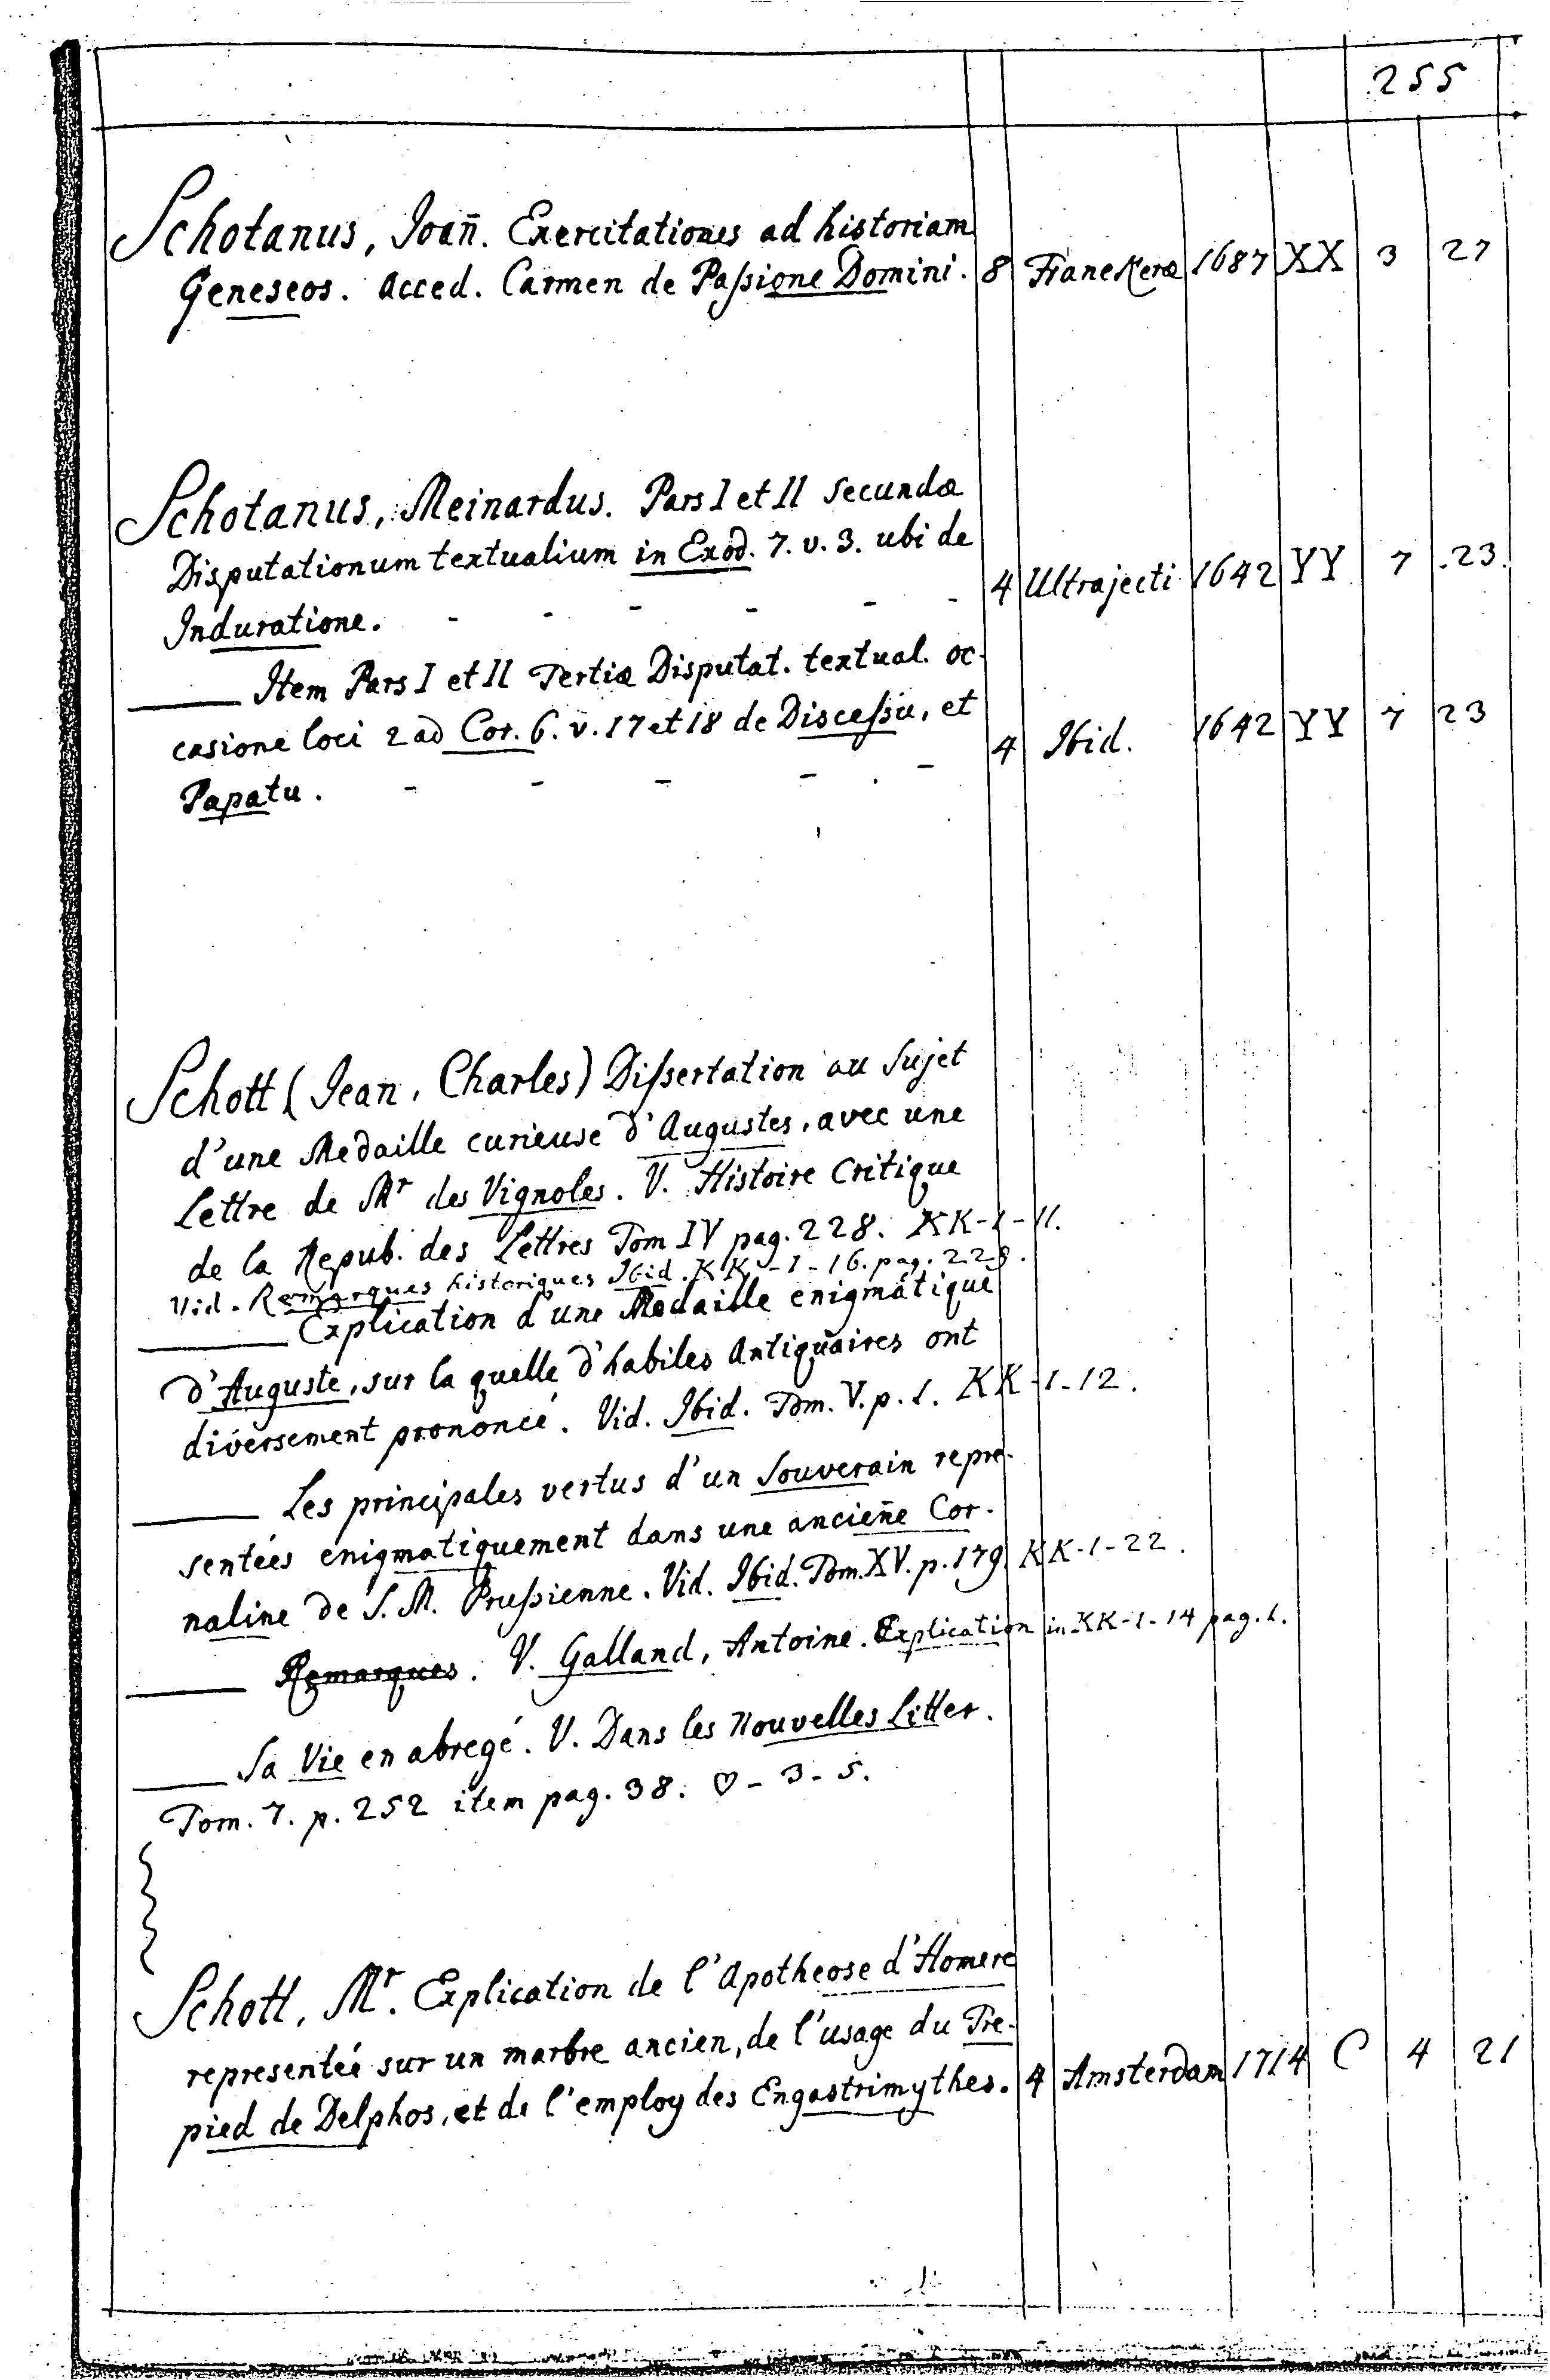 255
Schotanus, Joan̄. Exercitationes ad historiam
Geneseos. Acced. Carmen de Passione Domini. 8 Franekeræ 1687 XX 3 27
Schotanus, Meinardus. Pars I et II secundæ
Disputationum textualium in Exod. 7. v. 3. ubi de
Induratione. - - - - - 4 Ultrajecti 1642 YY 7 23.
Item Pars I et II Tertiæ Disputat. textual. oc-
casione loci 2 ad Cor. 6. v. 17 et 18 de Discessu, et
Papatu. - - - - . - 4 Ibid. 1642 YY 7 23
Schott (Jean, Charles) Dissertation au sujet
d'une Medaille curieuse d'Augustes, avec une
Lettre de Mr des Vignoles. V. Histoire Critique
de la Repub. des Lettres Tom IV pag. 228. KK-1-11.
Vid. Remarques historiques Ibid. KK-1-16. pag. 228.
Explication d'une Medaille enigmatique
d'Auguste, sur la quelle d'habiles Antiquaires ont
diversement prononcé. Vid. Ibid. Tom. V. p. 1. KK-1-12.
Les principales vertus d'un Souverain repre-
sentées enigmatiquement dans une ancien̄e Cor-
naline de S. M. Prussienne. Vid. Ibid. Tom. XV. p. 179. KK-1-22.
Remarques. V. Galland, Antoine. Explication in KK-1-14 pag. 1.
Sa Vie en abregé. V. Dans les Nouvelles Litter.
Tom. 7. p. 252 item pag. 38. ♡-3-5.
Schott, Mr. Explication de l'Apotheose d'Homere
representée sur un marbre ancien, de l'usage du Tre-
pied de Delphos, et de l'employ des Engastrimythes. 4 Amsterdam 1714 C 4 21